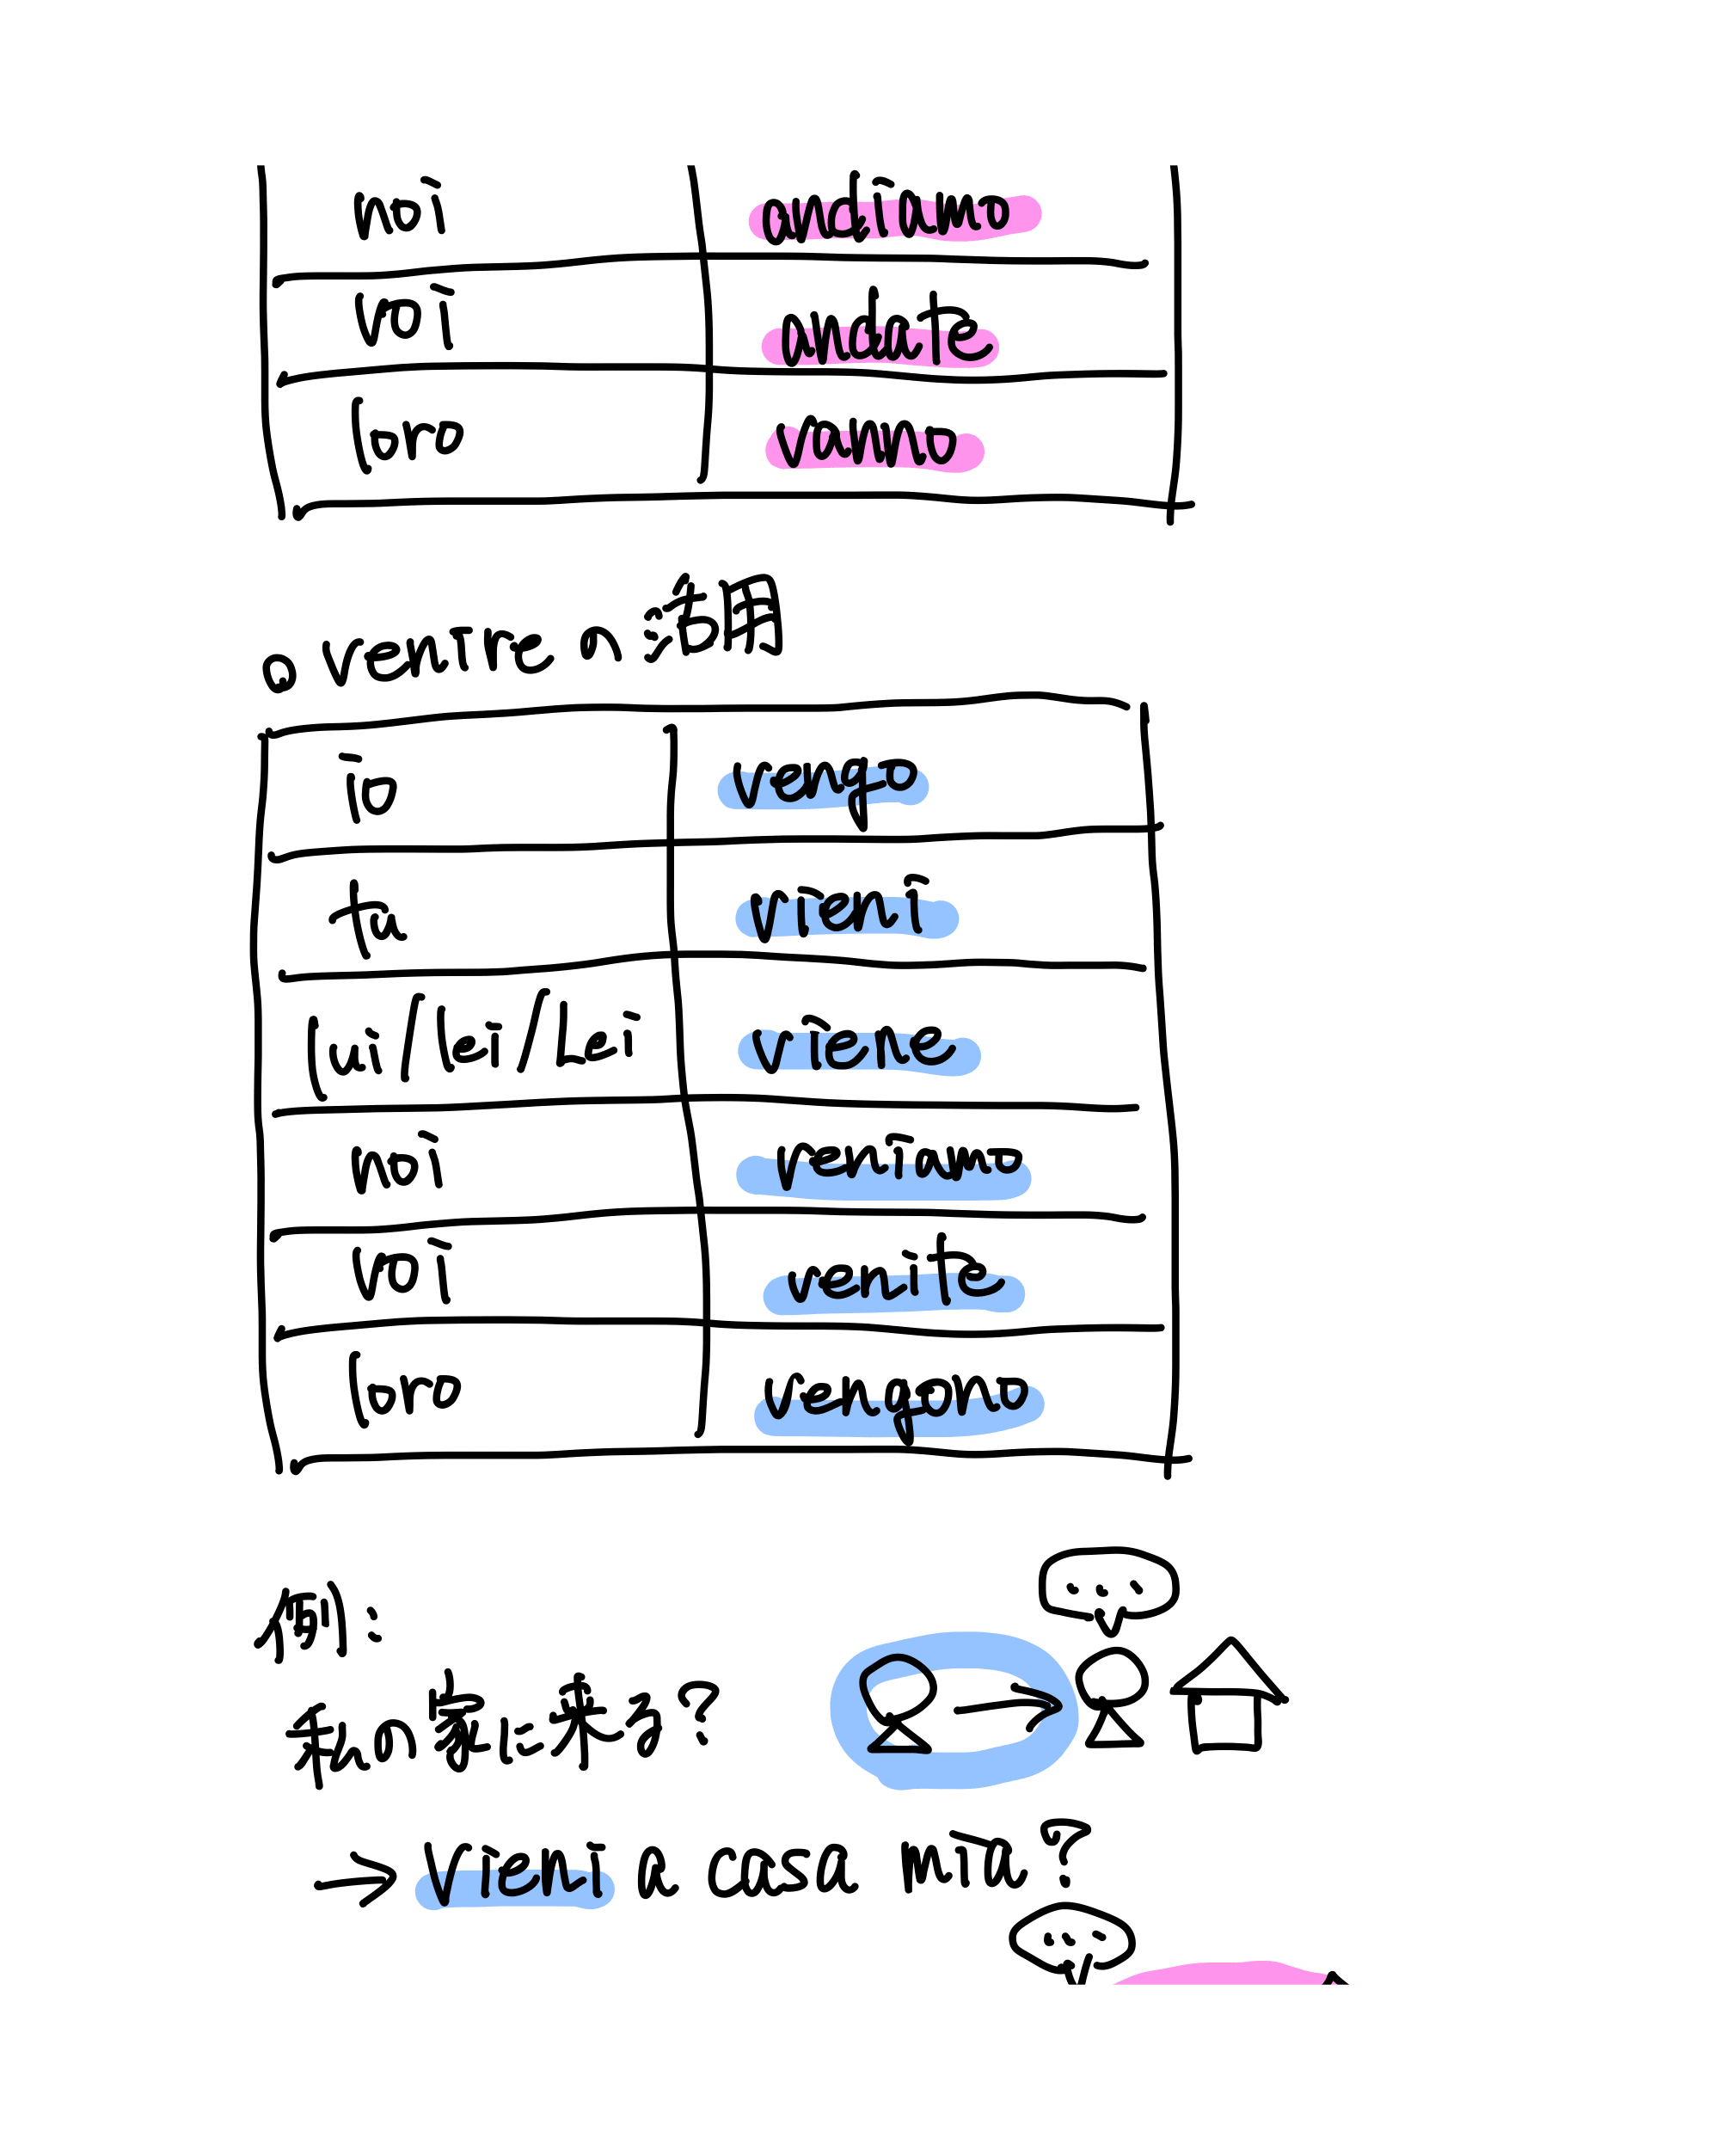 noi andiamo
voi andate
loro vanno
。venire の活用
io vengo
tu vieni
lui/lei/Lei viene
noi veniamo
voi venite
loro vengono
例:
私の家に来る?
→ Vieni a casa mia?